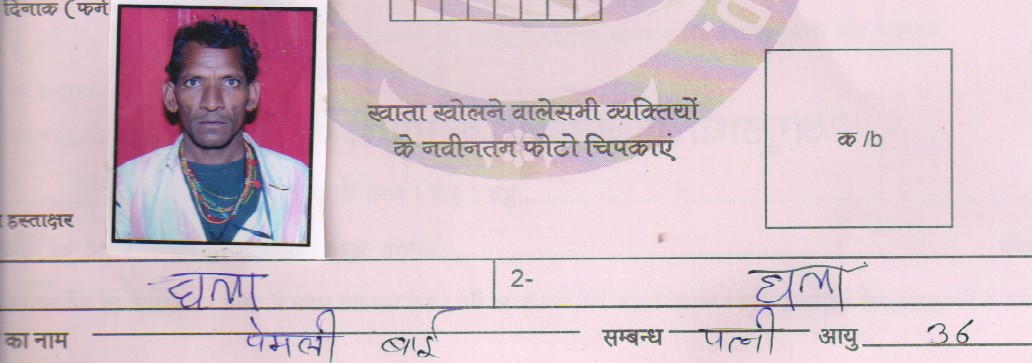 दिनाक (फर्म
खाता खोलने वालेसभी व्यक्तियों
के नवीनतम फोटो चिपकाएं
क /b
हस्ताक्षर
धला 2- धला
का नाम पेमली बाई सम्बन्ध पत्नी आयु 36